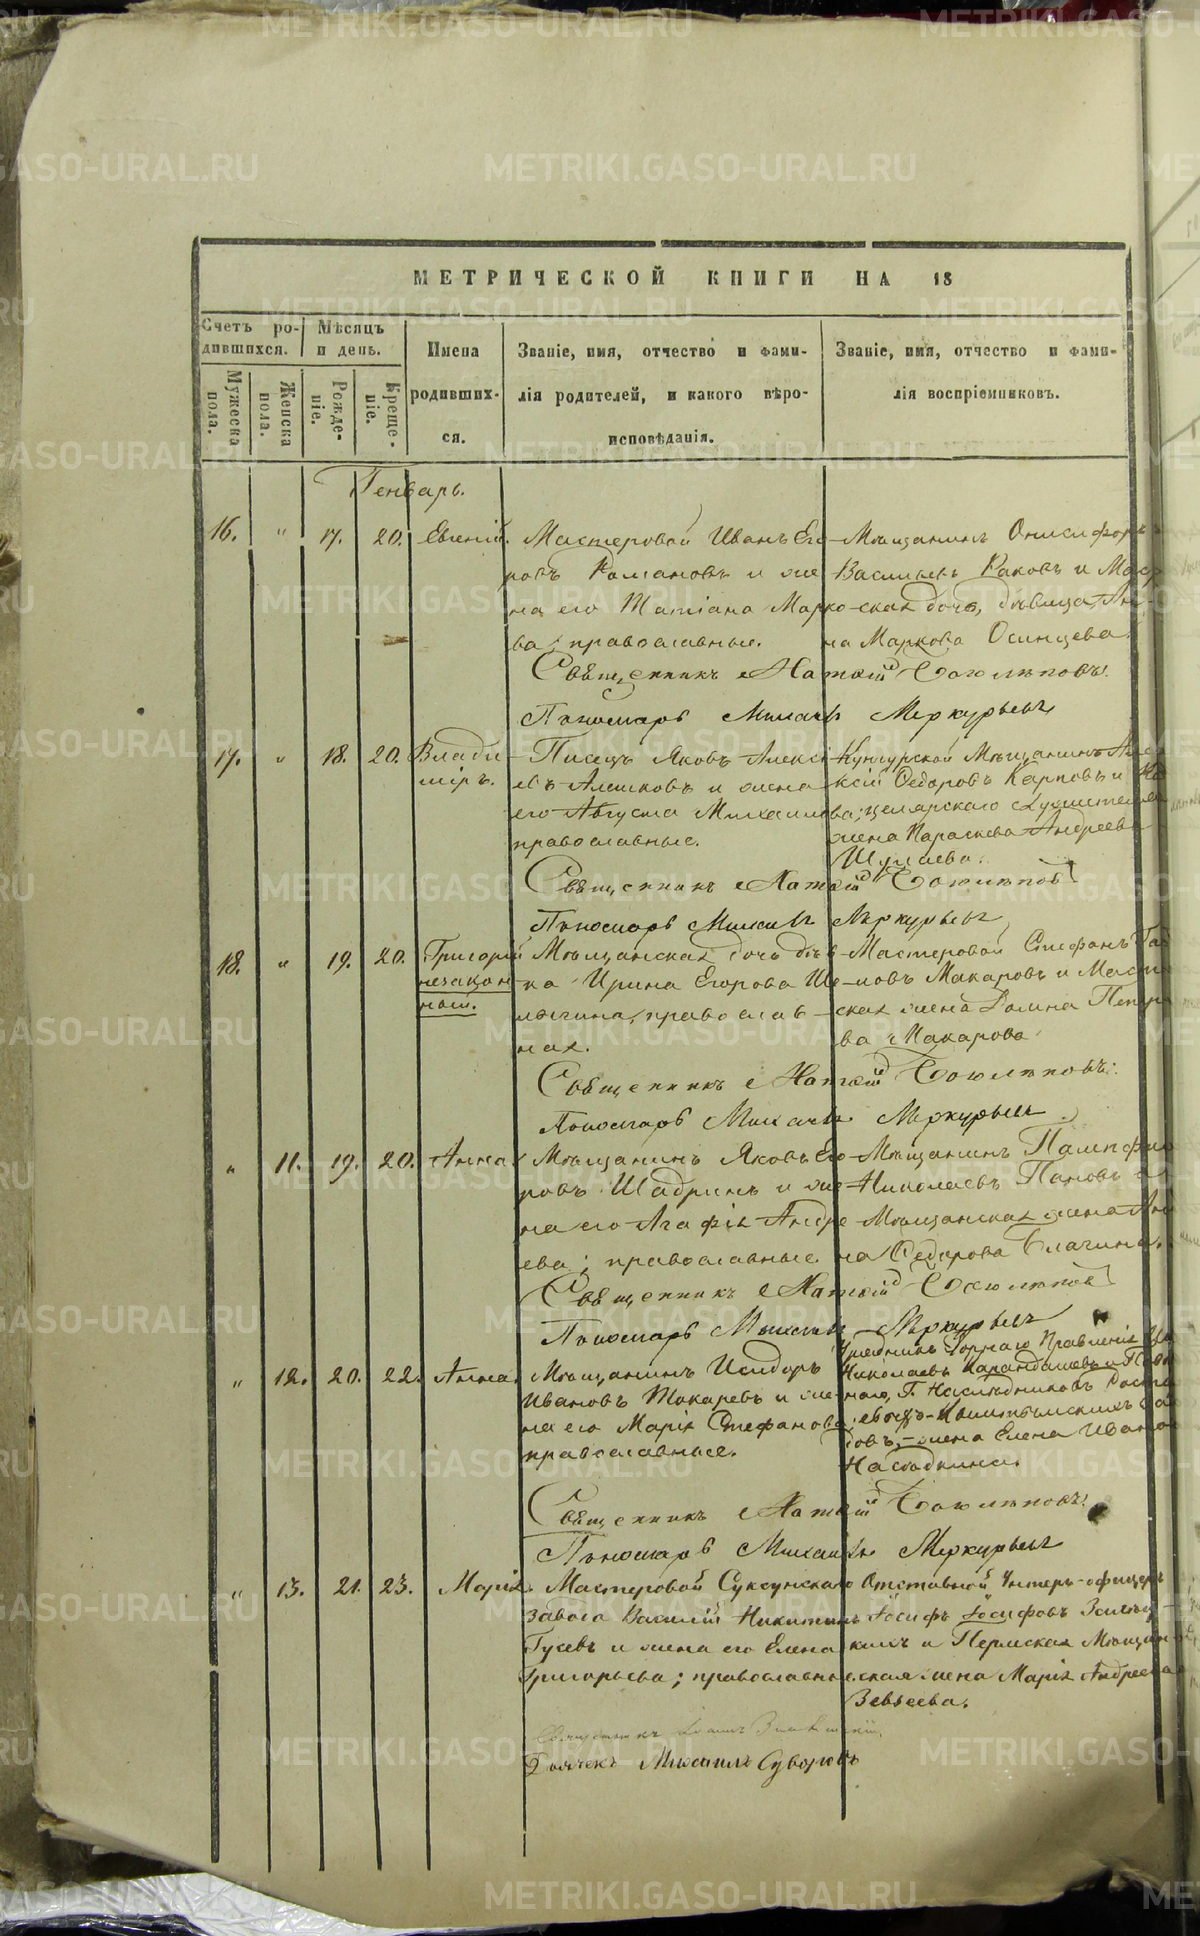 МЕТРИЧЕСКОЙ КНИГИ НА 18
Счетъ родившихся.
Мѣсяцъ и день.
Имена родившихся.
Званіе, имя, отчество и фамилія родителей, и какого вѣроисповѣданія.
Званіе, имя, отчество и фамилія воспріемниковъ.
Мужеска пола.
Женска пола.
Рожденіе.
Крещеніе.
Генварь.
16. " 17. 20. Евгеній.
Мастеровой Иванъ Его-
ровъ Романовъ и же
на его Татіана Марко-
ва; православные.
Мѣщанинъ Онисифоръ
Васильевъ Раковъ и Маст
ская дочь, дѣвица Ан-
на Маркова Осинцева.
Священникъ
Пономарь Михаилъ Меркурьевъ
17. " 18. 20. Влади-
міръ.
Писецъ Яковъ Алексѣ-
евъ Алешковъ и жена
его Августа Михаилова;
православные.
Кунгурской Мѣщанинъ Але
ксій Ѳедоровъ Карповъ и Ка
целярскаго Служителя
жена Параскева Андреева
Священникъ
Пономарь Михаилъ Меркурьевъ
18. " 19. 20. Григорій
незакон-
ный.
Мѣщанская дочь дѣв-
ка Ирина Егорова Ше-
православ-
ная.
Мастеровой Стефанъ
Макаровъ и Масте
ская жена Галина Петро
ва Макарова
Священникъ
Пономарь Михаилъ Меркурьевъ
" 11. 19. 20. Анна.
Мѣщанинъ Яковъ Его-
ровъ Шадринъ и же-
на его Агафія Андре-
ева; православные.
Мѣщанинъ Памфил
Николаевъ Пановъ и
Мѣщанская жена Ан
на Ѳедорова
Священникъ
Пономарь Михаилъ Меркурьевъ
" 12. 20. 22. Анна.
Мѣщанинъ Исидоръ
Ивановъ Токаревъ и же-
на его Марія Стефанова;
православные.
Горнаго Правленія
Николаевъ Карандашевъ и
Г. Наслѣдниковъ
жена Елена Иванов
Насѣдкина.
Священникъ
Пономарь Михаилъ Меркурьевъ
" 13. 21. 23. Марія.
Мастеровой Суксунскаго
Завода Василій Никитинъ
Гусевъ и жена его Елена
Григорьева; православные.
Отставной Унтеръ-офицеръ
Іосифъ Іосифовъ
и Пермская Мѣщан-
ская жена Марія Андреева
Дьячекъ Михаилъ Суворовъ
METRIKI.GASO-URAL.RU